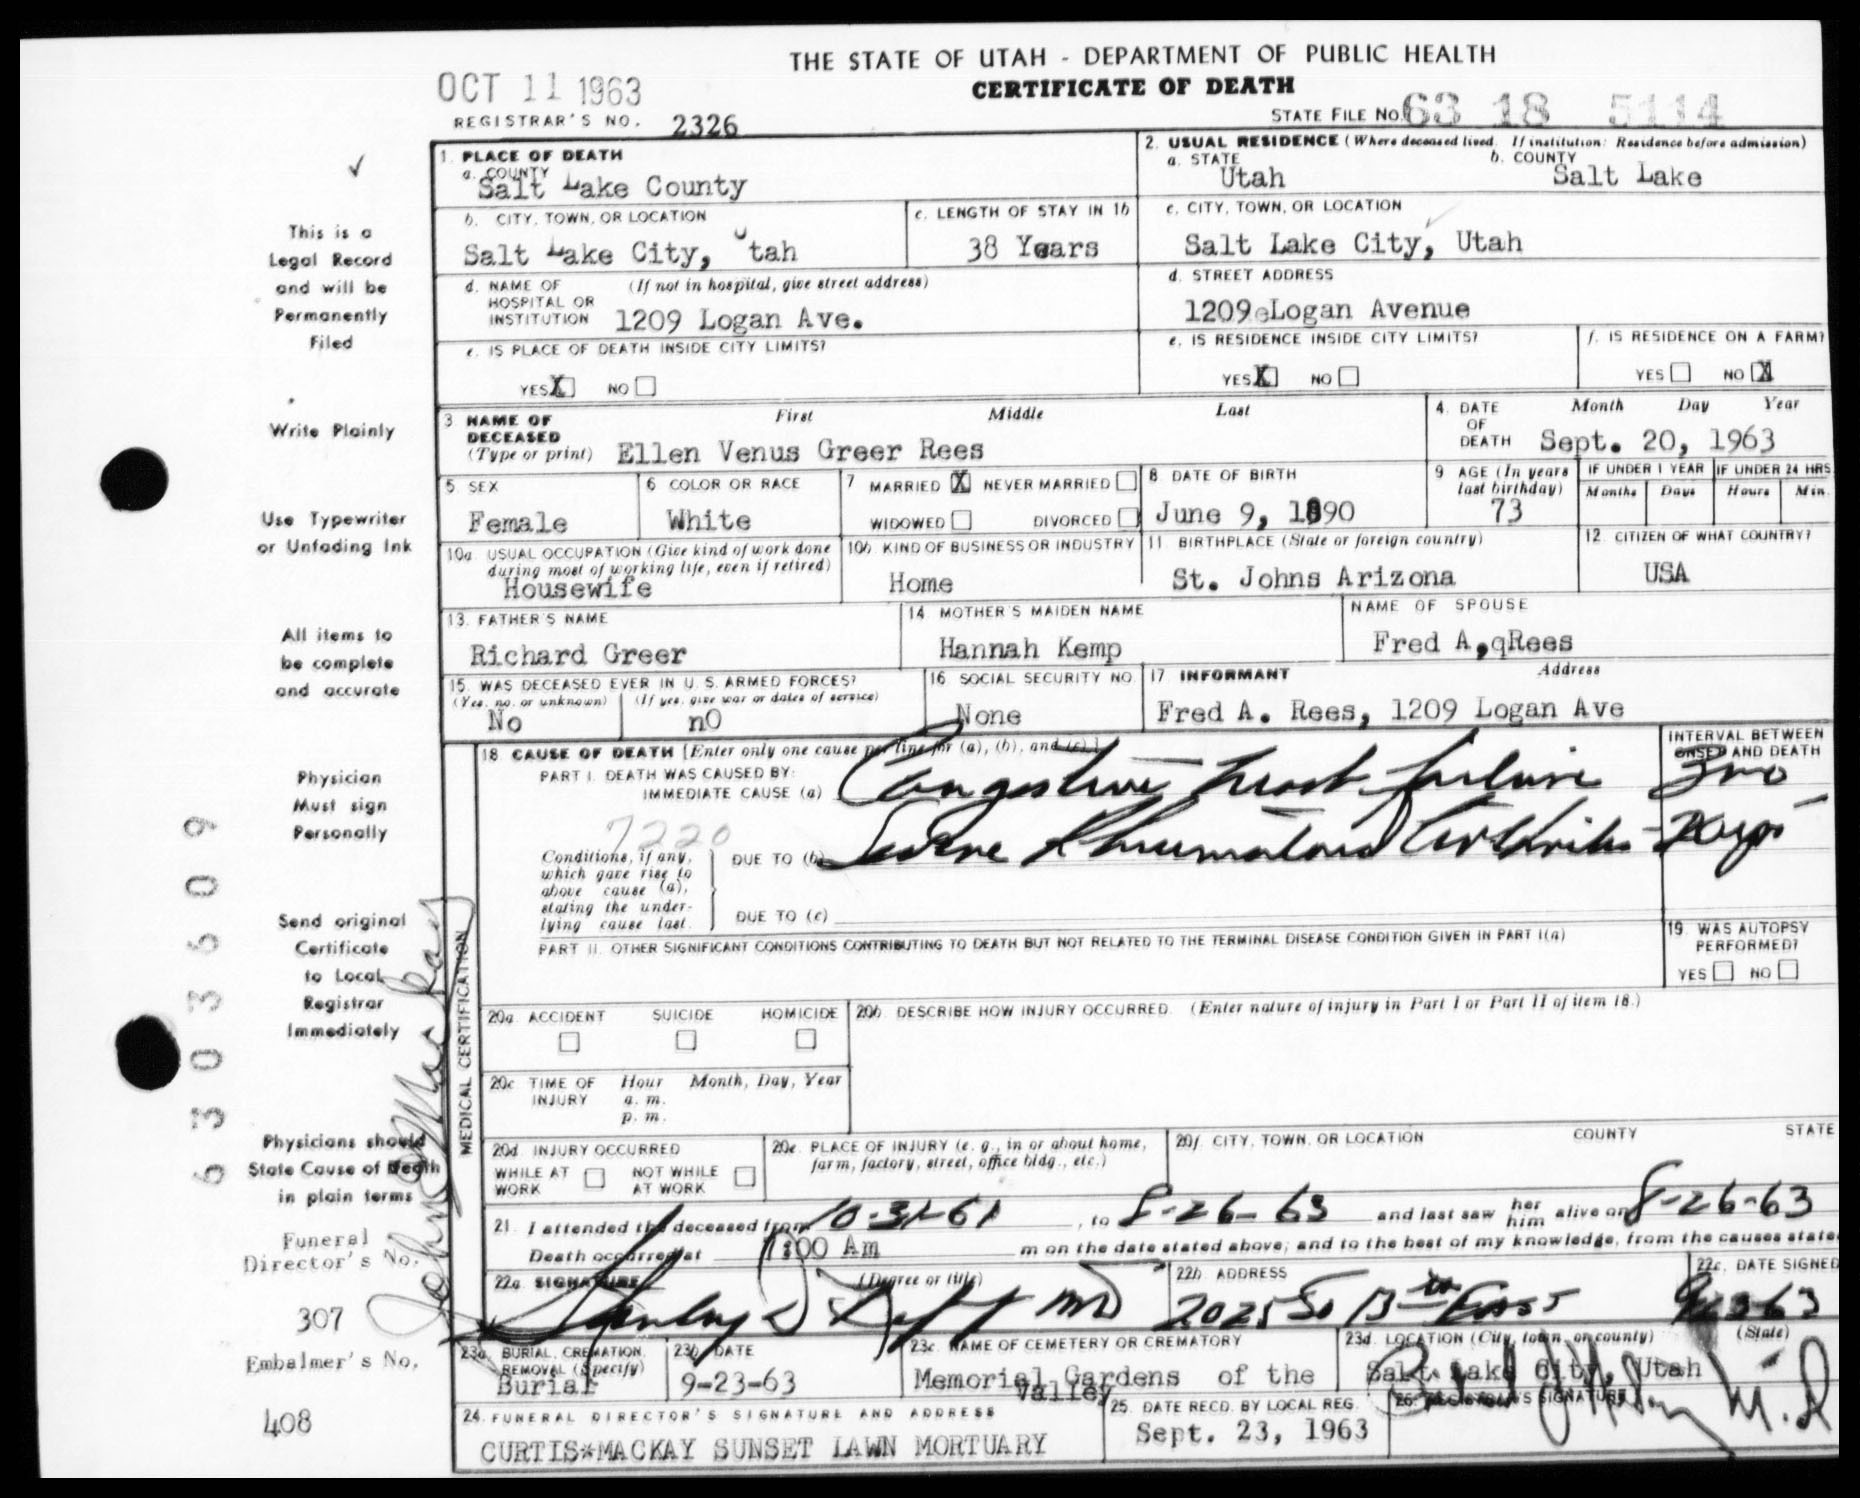 THE STATE OF UTAH - DEPARTMENT OF PUBLIC HEALTH
CERTIFICATE OF DEATH
OCT 11 1963
REGISTRAR'S NO. 2326
STATE FILE NO. 63 18 5114
1. PLACE OF DEATH
a. COUNTY
Salt Lake County
2. USUAL RESIDENCE (Where deceased lived. If institution: Residence before admission)
a. STATE b. COUNTY
Utah Salt Lake
b. CITY, TOWN, OR LOCATION
Salt Lake City, Utah
c. LENGTH OF STAY IN 1b
38 Years
c. CITY, TOWN, OR LOCATION
Salt Lake City, Utah
d. NAME OF (If not in hospital, give street address)
HOSPITAL OR
INSTITUTION 1209 Logan Ave.
d. STREET ADDRESS
1209eLogan Avenue
e. IS PLACE OF DEATH INSIDE CITY LIMITS?
YES X NO
e. IS RESIDENCE INSIDE CITY LIMITS?
YES X NO
f. IS RESIDENCE ON A FARM?
YES NO X
3 NAME OF First Middle Last
DECEASED
(Type or print) Ellen Venus Greer Rees
4. DATE Month Day Year
OF
DEATH Sept. 20, 1963
5. SEX
Female
6 COLOR OR RACE
White
7 MARRIED X NEVER MARRIED
WIDOWED DIVORCED
8 DATE OF BIRTH
June 9, 1890
9 AGE (In years
last birthday)
73
IF UNDER 1 YEAR IF UNDER 24 HRS.
Months Days Hours Min.
10a. USUAL OCCUPATION (Give kind of work done
during most of working life, even if retired)
Housewife
10b. KIND OF BUSINESS OR INDUSTRY
Home
11. BIRTHPLACE (State or foreign country)
St. Johns Arizona
12. CITIZEN OF WHAT COUNTRY?
USA
13. FATHER'S NAME
Richard Greer
14. MOTHER'S MAIDEN NAME
Hannah Kemp
NAME OF SPOUSE
Fred A,qRees
15. WAS DECEASED EVER IN U. S. ARMED FORCES?
(Yes, no, or unknown) (If yes, give war or dates of service)
No nO
16. SOCIAL SECURITY NO.
None
17 INFORMANT Address
Fred A. Rees, 1209 Logan Ave
18. CAUSE OF DEATH [Enter only one cause per line for (a), (b), and (c).]
PART I. DEATH WAS CAUSED BY:
IMMEDIATE CAUSE (a) Congestive heart failure
INTERVAL BETWEEN
ONSET AND DEATH
7220
Conditions, if any,
which gave rise to
above cause (a),
stating the under-
lying cause last.
DUE TO (b) Severe Rheumatoid Arthritis
DUE TO (c)
PART II. OTHER SIGNIFICANT CONDITIONS CONTRIBUTING TO DEATH BUT NOT RELATED TO THE TERMINAL DISEASE CONDITION GIVEN IN PART I(a)
19. WAS AUTOPSY
PERFORMED?
YES NO
MEDICAL CERTIFICATION
20a. ACCIDENT SUICIDE HOMICIDE
20b. DESCRIBE HOW INJURY OCCURRED. (Enter nature of injury in Part I or Part II of item 18.)
20c. TIME OF Hour Month, Day, Year
INJURY a. m.
p. m.
20d. INJURY OCCURRED
WHILE AT WORK NOT WHILE AT WORK
20e. PLACE OF INJURY (e. g., in or about home,
farm, factory, street, office bldg., etc.)
20f. CITY, TOWN, OR LOCATION COUNTY STATE
21. I attended the deceased from 10-31-61, to 8-26-63 and last saw her him alive on 8-26-63
Death occurred at 1:00 Am m on the date stated above; and to the best of my knowledge, from the causes state
22a. SIGNATURE (Degree or title)
Stanley D MD
22b. ADDRESS
2025 So 13th East
22c. DATE SIGNED
23a. BURIAL, CREMATION,
REMOVAL (Specify)
Burial
23b. DATE
9-23-63
23c. NAME OF CEMETERY OR CREMATORY
Memorial Gardens of the
Valley
23d. LOCATION (City, town, or county) (State)
Salt Lake City, Utah
24. FUNERAL DIRECTOR'S SIGNATURE AND ADDRESS
CURTIS*MACKAY SUNSET LAWN MORTUARY
25. DATE RECD. BY LOCAL REG.
Sept. 23, 1963
26. REGISTRAR'S SIGNATURE
M.D
This is a
Legal Record
and will be
Permanently
Filed
Write Plainly
Use Typewriter
or Unfading Ink
All items to
be complete
and accurate
Physician
Must sign
Personally
Send original
Certificate
to Local
Registrar
Immediately
Physicians should
State Cause of Death
in plain terms
Funeral
Director's No.
307
Embalmer's No.
408
6303609
John Mackay